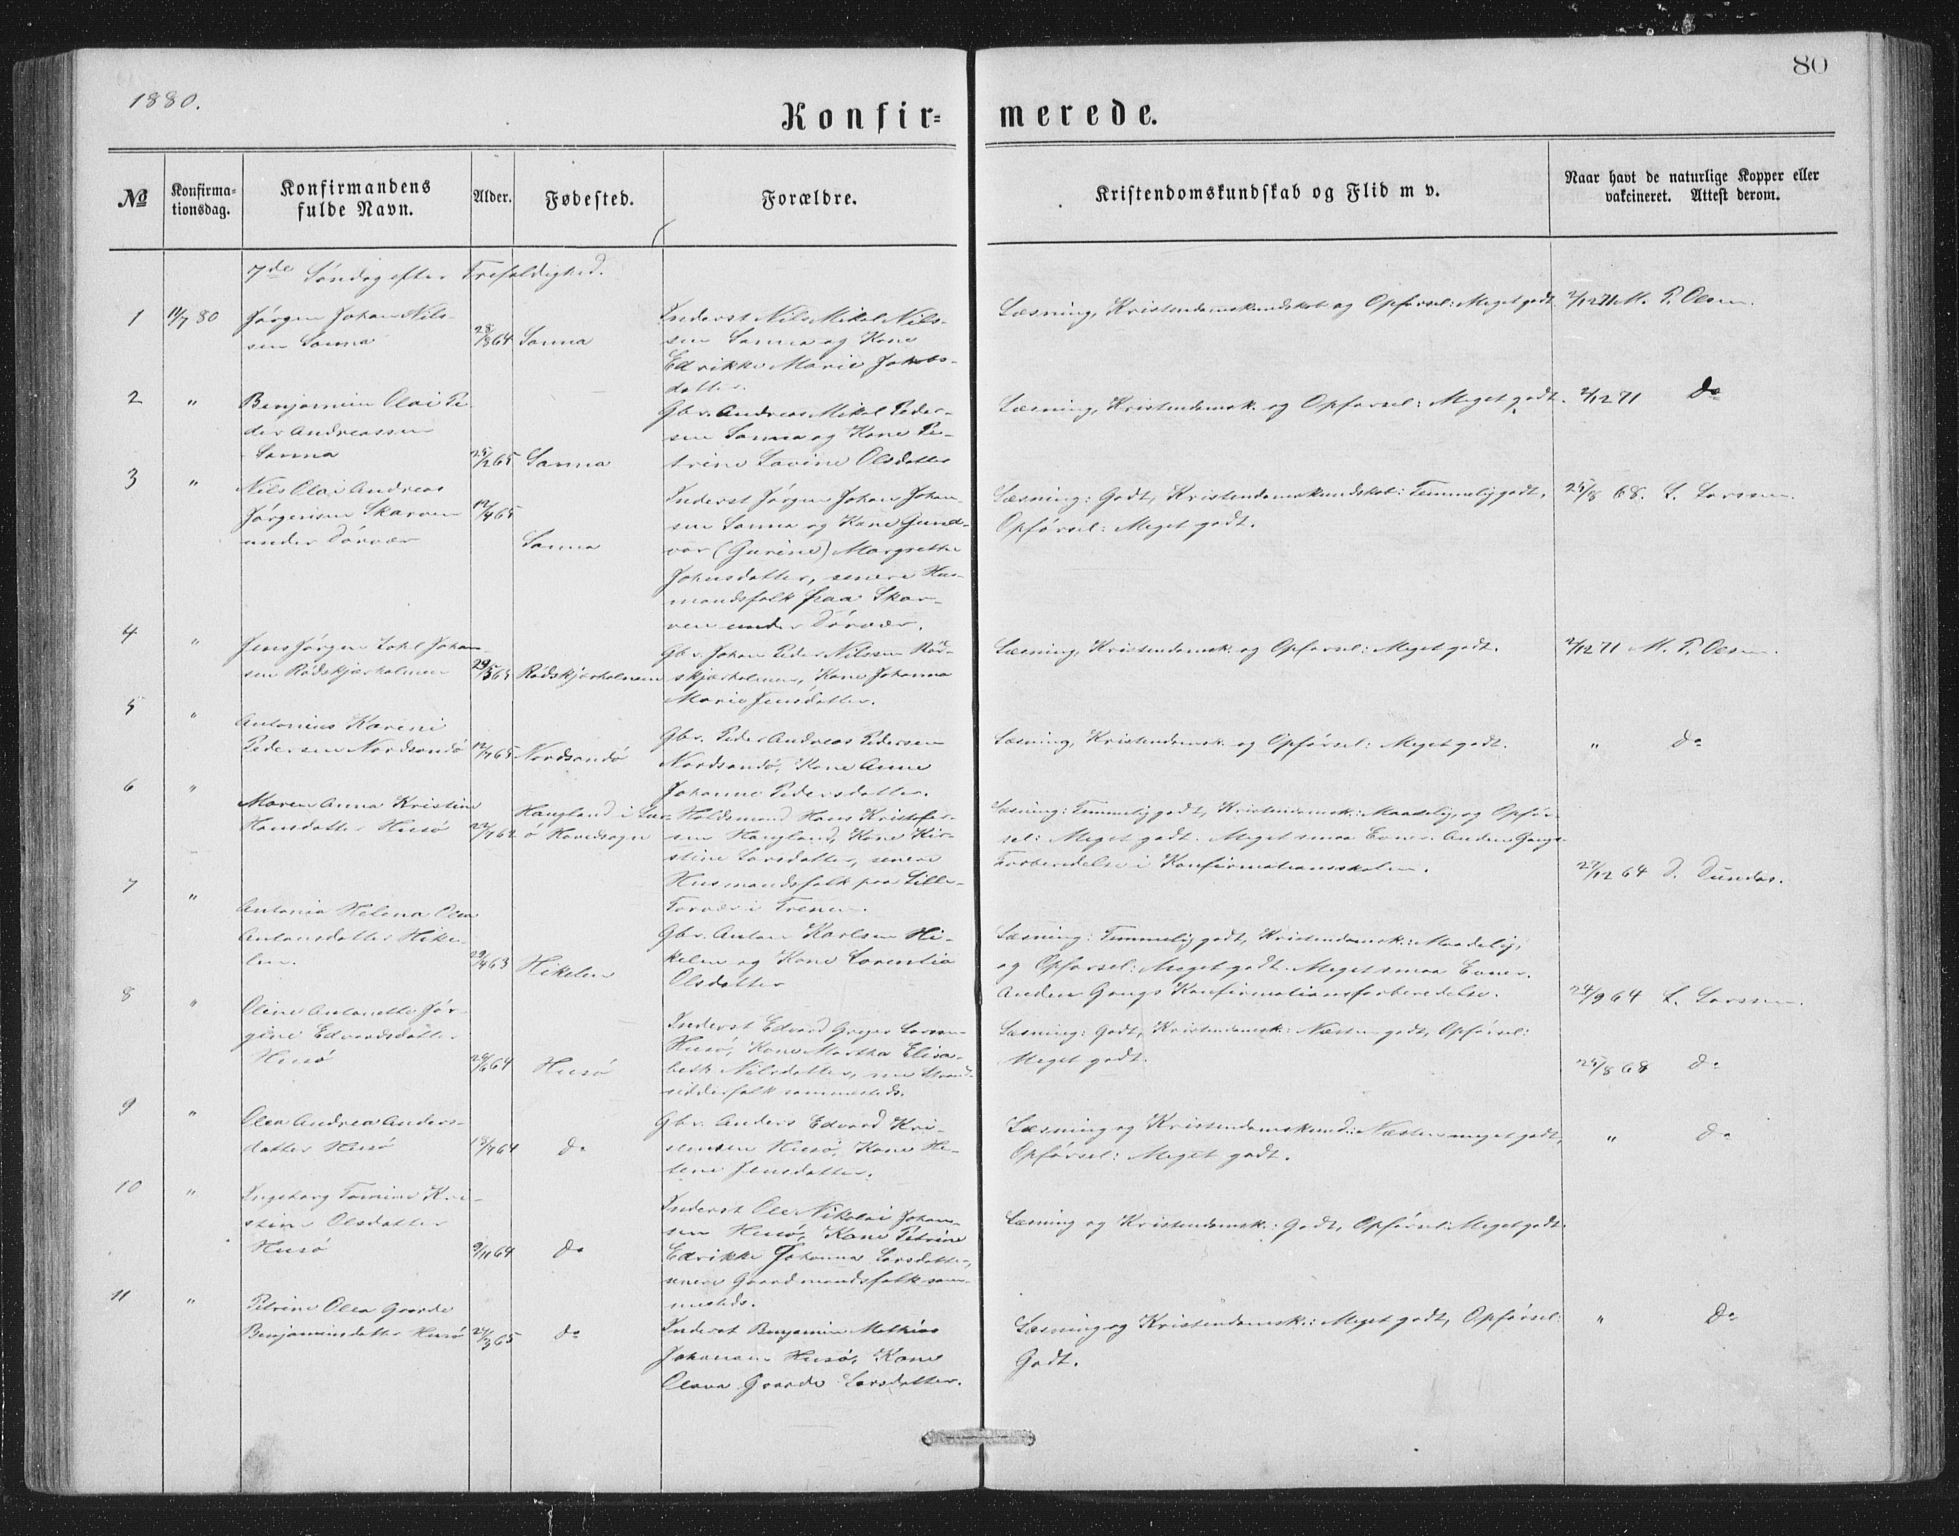 80
1880.
Konfir= merede.
№
Konfirma-
tionsdag.
Konfirmandens
fulde Navn.
Alder.
Fødested.
Forældre.
Kristendomskundskab og Flid m v.
Naar havt de naturlige Kopper eller
vakcineret. Attest derom.
7de Søndag efter Trefoldighed.
1
11/7 80
Jørgen Johan Nils-
sen Sanna
28/8 64
Sanna
Inderst Nils Mikal Nils-
sen Sanna og Kone
Edrikke Marie Jakobs-
datter.
Læsning, Kristendomskundskab og Opførsel: Meget godt
2/12 71 M. P. Olsen.
2
"
Benjamin Olai Pe-
der Andreassen
Sanna
25/2 65
Sanna
Gbr. Andreas Mikal Peder-
sen Sanna og Kone Pe-
trine Lovine Olsdatter
Læsning, Kristendomsk. og Opførsel: Meget godt.
2/12 71 do
3
"
Nils Olai Andreas
Jørgensen Skarven
under Dørvær
12/4 65
Sanna
Inderst Jørgen Johan Johan-
sen Sanna og Kone Gund-
vor (Gurine) Margrethe
Johnsdatter, senere Hus-
mandsfolk paa Skar-
ven under Dørvær.
Læsning: Godt, Kristendomskundskab: Temmelig godt,
Opførsel: Meget godt.
25/8 68. L. Larssen.
4
"
Jens Jørgen Zahl Johan-
sen Rødskjærholmen
Rødskjærholmen
Gbr. Johan Peder Nilssen Rød-
skjærholmen, Kone Johanna
Marie Jensdatter.
Læsning, Kristendomsk. og Opførsel: Meget godt.
2/12 71 M. P. Olsen.
5
"
Antonius Kareni
Pedersen Nordsandø
12/7 65
Nordsandø
Gbr. Peder Andreas Pedersen
Nordsandø, Kone Anne
Johanne Pedersdatter.
Læsning, Kristendomsk. og Opførsel: Meget godt.
" do
6
"
Maren Anna Kristine
Hansdatter Husø
22/7 62
Haugland i Lur-
ø Hovedsogn
Holdsmand Hans Kristofer-
sen Haugland, Kone Kir-
stine Larsdatter, senere
Husmandsfolk paa Lille-
Torvær i Trenen.
Læsning: Temmelig godt, Kristendomsk.: Maadelig, og Opfør-
sel: Meget godt. Meget smaa Evner. Anden Gangs
Forberedelse i Konfirmationsskolen.
27/12 64 D. Dundas.
7
"
Antonia Helena Olea
Antonsdatter Hike-
len.
29/4 63
Hikelen
Gbr. Anton Karlsen Hi-
kelen og Kone Lorentia
Olsdatter
Læsning: Temmelig godt, Kristendomsk.: Maadelig,
og Opførsel: Meget godt. Meget smaa Evner.
Anden Gangs Konfirmationsforberedelse.
24/9 64 L. Larssen.
8
"
Oline Antonette Jør-
gine Edvardsdatter
Husø
26/6 64
Husø
Inderst Edvard Greger Larsen
Husø, Kone Martha Elisa-
beth Nilsdatter, nu Strand-
sidderfolk sammesteds.
Læsning: Godt, Kristendomsk.: Næsten godt, Opførsel:
Meget godt.
25/8 68 do
9
"
Olea Andrea Anders-
datter Husø
18/7 64
do
Gbr. Anders Edvard Kri-
stensen Husø, Kone He-
lene Jensdatter.
Læsning og Kristendomskund.: Næsten meget godt,
Opførsel: Meget godt.
" do
10
"
Ingeborg Tomine Kri-
stine Olsdatter
Husø
9/11 64
do
Inderst Ole Nikolai Johan-
sen Husø, Kone Petrine
Edrikke Johanna Larsdatter,
senere Gaardmandsfolk sam-
mesteds.
Læsning og Kristendomsk.: Godt, Opførsel: Meget godt.
11
"
Petrine Olea Gaarde
Benjaminsdatter Husø
27/3 65
do
Inderst Benjamin Mathias
Johansen Husø, Kone
Olava Gaarde Larsdatter.
Læsning og Kristendomsk.: Meget godt, Opførsel:
Godt.
" do